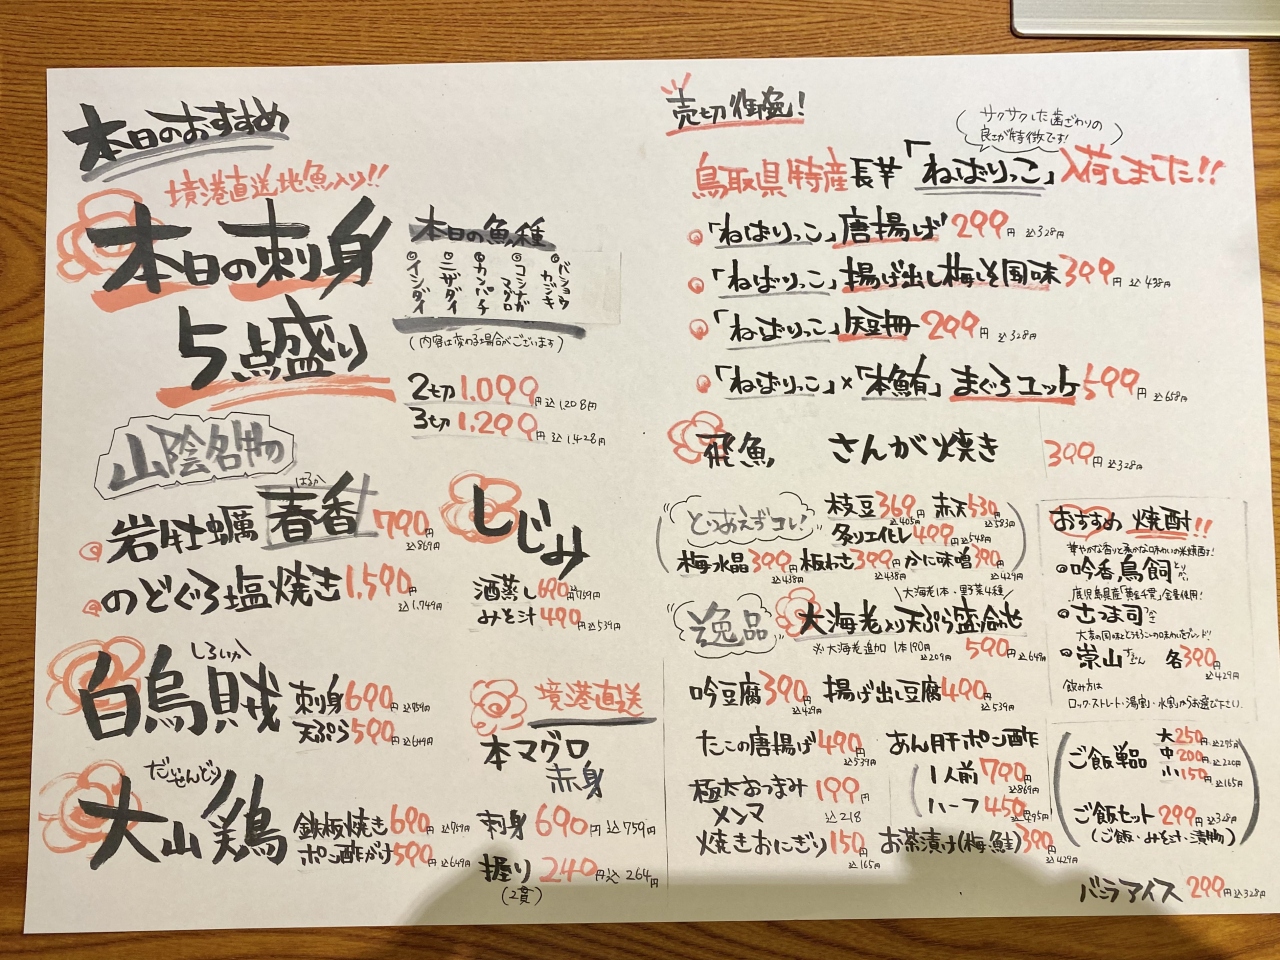 本日のおすすめ
境港直送地魚入り!!
本日の刺身
5点盛り
本日の魚種
バショウカジキ
コシナガマグロ
カンパチ
ニザダイ
イシダイ
(内容は変わる場合がございます)
2切 1,099円 込1,208円
3切 1,299円 込1,428円
山陰名物
はるか
岩牡蠣 春香 790円 込869円
のどぐろ塩焼き 1,590円 込1,749円
しじみ
酒蒸し 690円 込759円
みそ汁 490円 込539円
しろいか
白烏賊
刺身 690円 込759円
天ぷら 590円 込649円
だいせんどり
大山鶏
鉄板焼き 690円 込759円
ポン酢がけ 590円 込649円
境港直送
本マグロ
赤身
刺身 690円 込759円
握り 240円 込264円
(2貫)
売切御免!
サクサクした歯ざわりの
良さが特徴です!
鳥取県特産長芋「ねばりっこ」入荷しました!!
「ねばりっこ」唐揚げ 299円 込328円
「ねばりっこ」揚げ出し梅しそ風味 399円 込438円
「ねばりっこ」短冊 299円 込328円
「ねばりっこ」×「本鮪」まぐろユッケ 599円 込658円
飛魚 さんが焼き 399円 込328円
とりあえずコレ!
枝豆 369円 込405円 赤天 530円 込583円
炙りエイヒレ 499円 込548円
梅水晶 399円 込438円 板わさ 399円 込438円 かに味噌 390円 込429円
\大海老1本・野菜4種/
逸品
大海老入り天ぷら盛合せ
※大海老追加 1本190円 込209円 590円 込649円
吟豆腐 390円 込429円 揚げ出し豆腐 490円 込539円
たこの唐揚げ 490円 込539円
あん肝ポン酢
1人前 790円 込869円
ハーフ 450円 込495円
極太おつまみ
メンマ
199円
込218
焼きおにぎり 150円 込165円
お茶漬け(梅・鮭) 390円 込429円
おすすめ 焼酎!!
華やかな香りと柔かな味わいの米焼酎です!
吟香 鳥飼 とりかい
鹿児島県産「黄金千貫」全量使用!
さつま司
大麦の風味とどうもろこしの味わいをブレンド!!
崇山 すーざん 各390円 込429円
飲み方は
ロック・ストレート・湯割・水割からお選び下さい。
ご飯単品
大 250円 込275円
中 200円 込220円
小 150円 込165円
ご飯セット 299円 込328円
(ご飯・みそ汁・漬物)
バニラアイス 299円 込328円